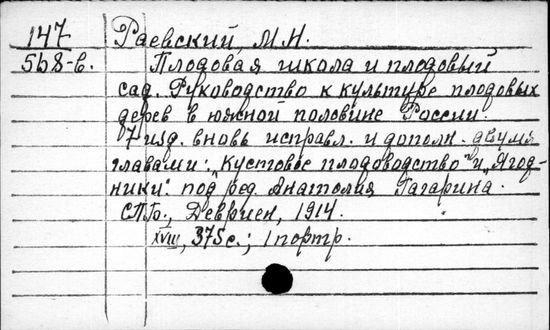 147 Раевский, М.Н.
568-в. Плодовая школа и плодовый
сад. Руководство к культуре плодовых
дерев в южной половине России.
7 изд. вновь исправл. и дополн. двумя
главами: „Кустовое плодоводство" и „Ягод-
ники". под ред. Анатолия Гагарина.
СПб., Девриен, 1914.
XVIII, 375 с.; 1 портр.